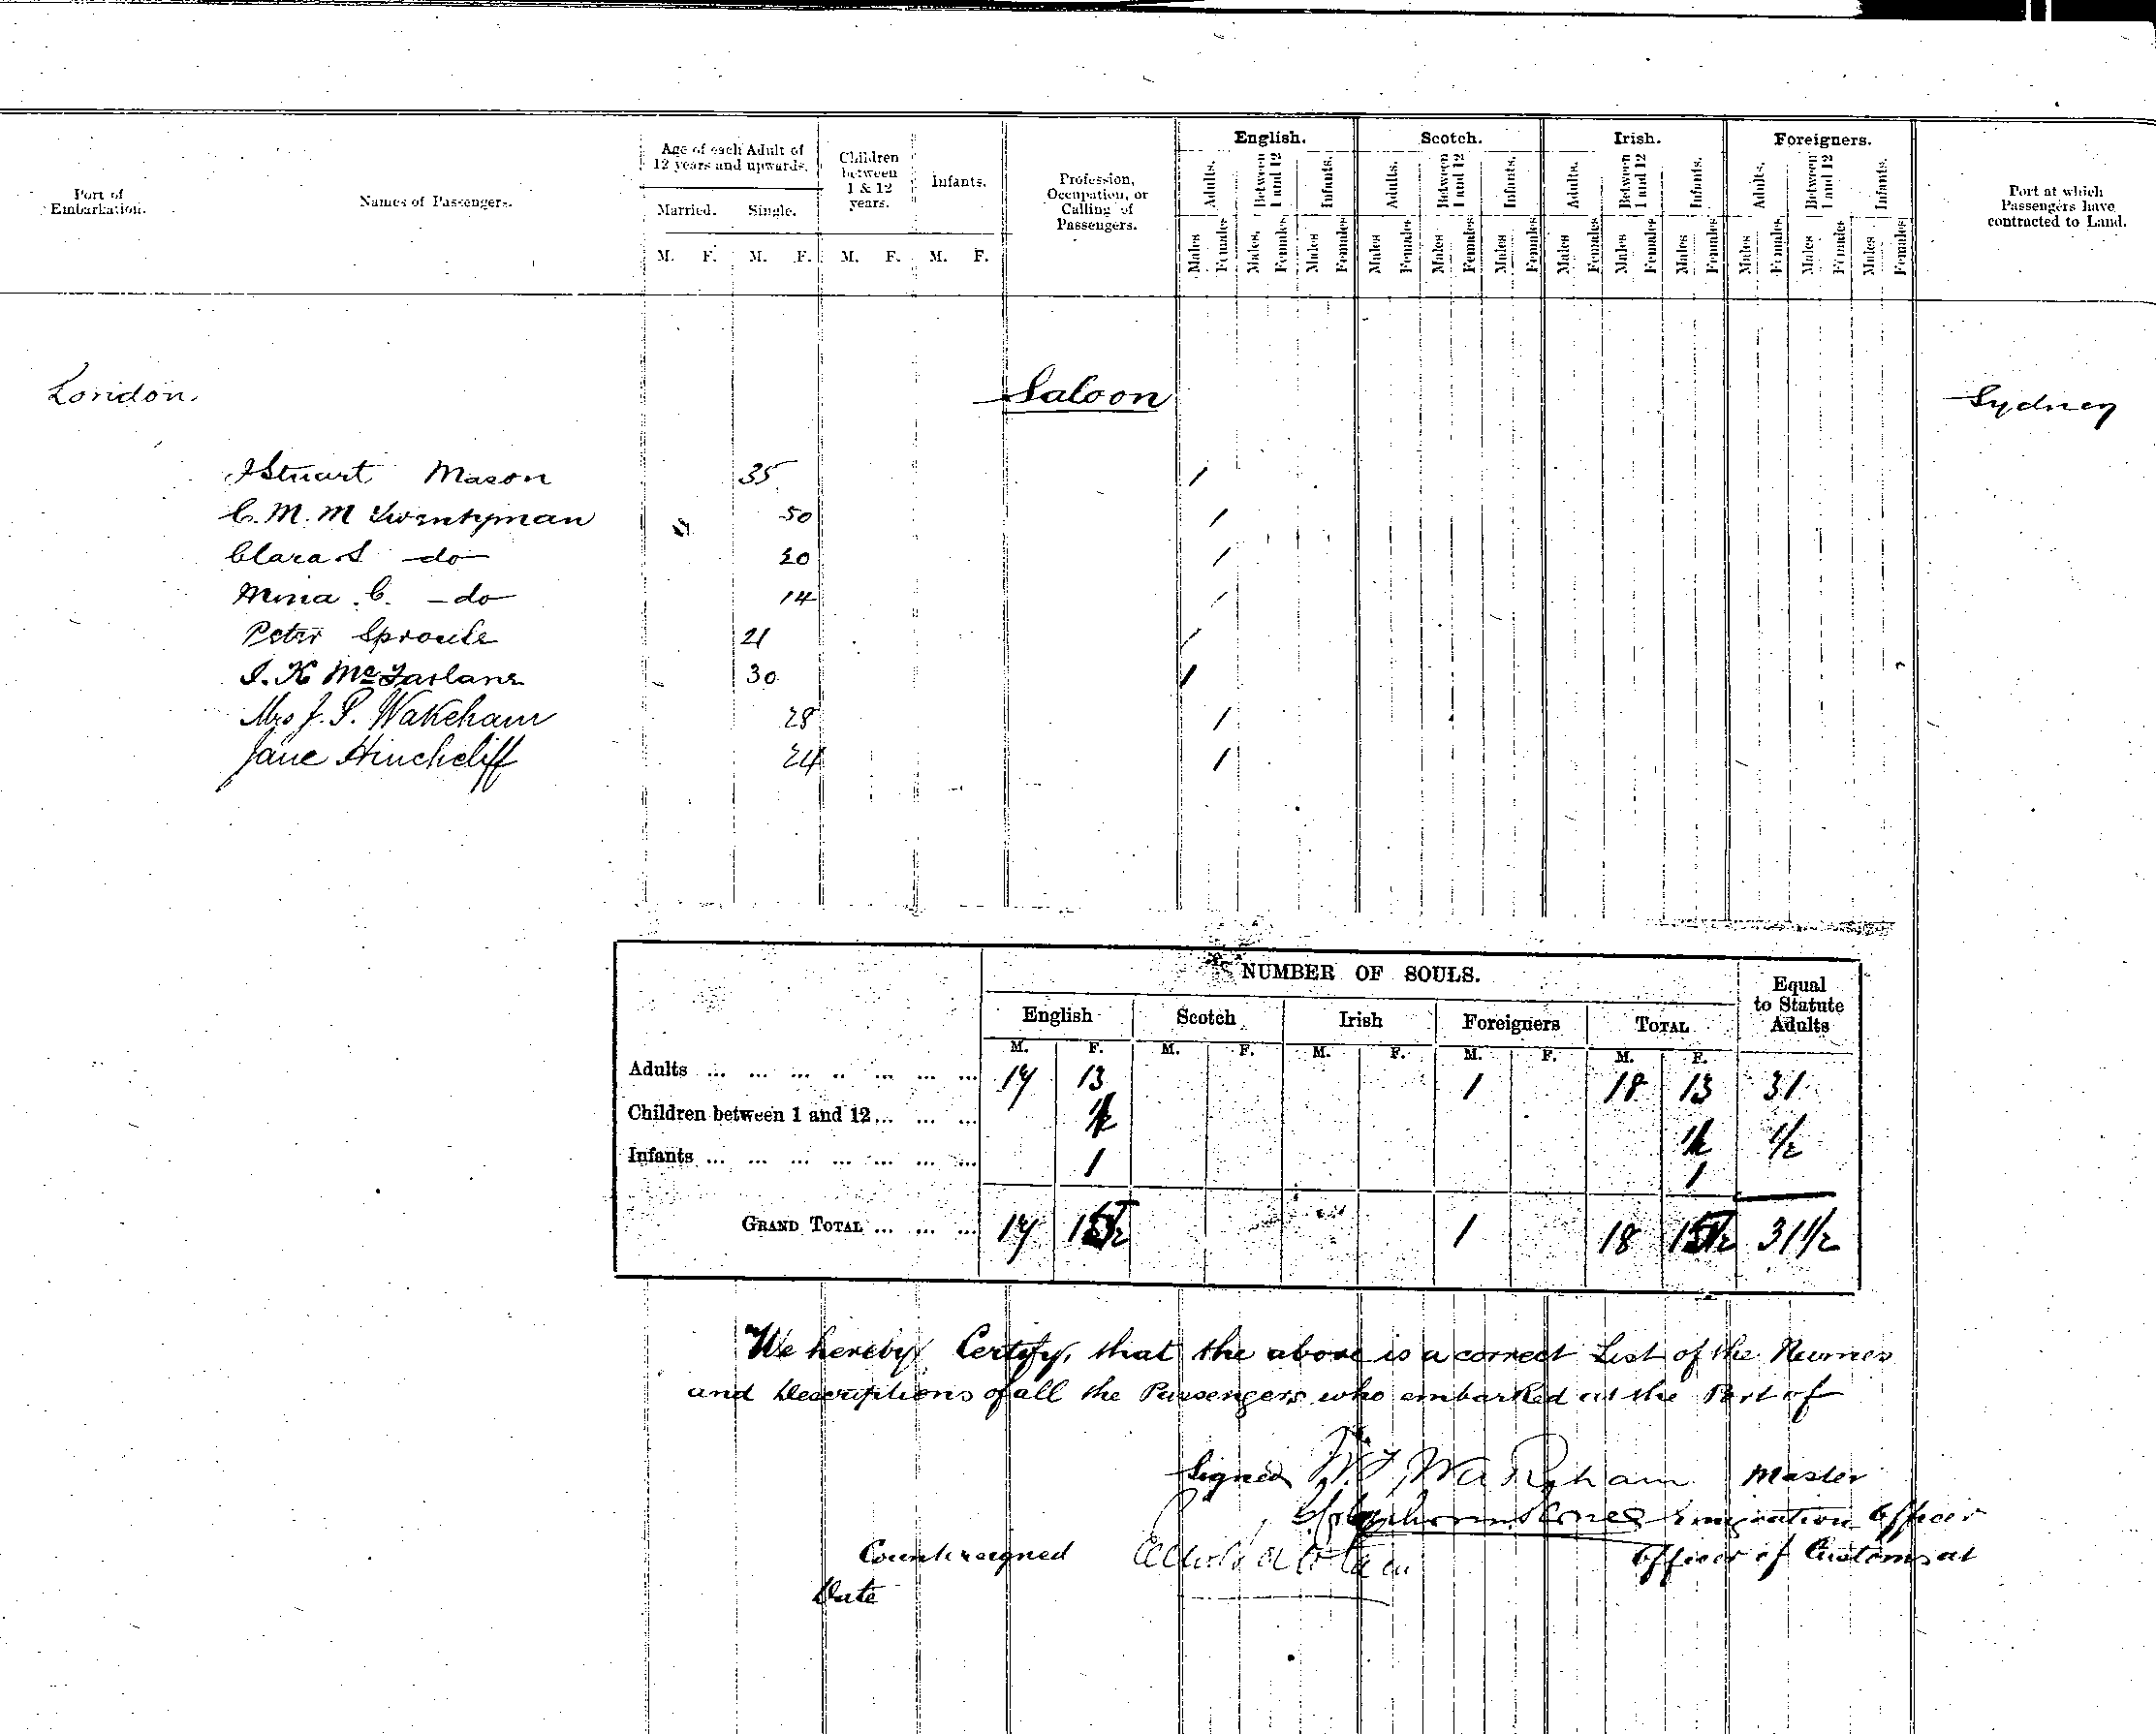 Port of Embarkation.
Names of Passengers.
Age of each Adult of 12 years and upwards.
Married. Single.
M. F. M. F.
Children between 1 & 12 years.
M. F.
Infants.
M. F.
Profession, Occupation, or Calling of Passengers.
English.
Adults. Between 1 and 12 Infants.
Males Females Males, Females Males Females
Scotch.
Adults. Between 1 and 12 Infants.
Males Females Males Females Males Females
Irish.
Adults. Between 1 and 12 Infants.
Males Females Males Females Males Females
Foreigners.
Adults. Between 1 and 12 Infants.
Males Females Males Females Males Females
Port at which Passengers have contracted to Land.
London. Saloon Sydney
Stuart Mason 35 1
C. M. M Twentyman 50 1
Clara S do 20 1
Mina C. do 14 1
Peter Sproule 21 1
J. K McFarlane 30 1
Mrs J. P. Wakeham 28 1
Jane Hinchcliff 24 1
NUMBER OF SOULS.
English Scotch Irish Foreigners TOTAL Equal to Statute Adults
M. F. M. F. M. F. M. F. M. F.
Adults ... 17 13 1 18 13 31
Children between 1 and 12 ... 1/2
Infants ... 1 1
GRAND TOTAL ... 17 1 18 31 1/2
We hereby Certify, that the above is a correct List of the Names
and Descriptions of all the Passengers who embarked at the Port of
Signed Wakeham Master
Emigration Officer
Countersigned Officer of Customs at
Date